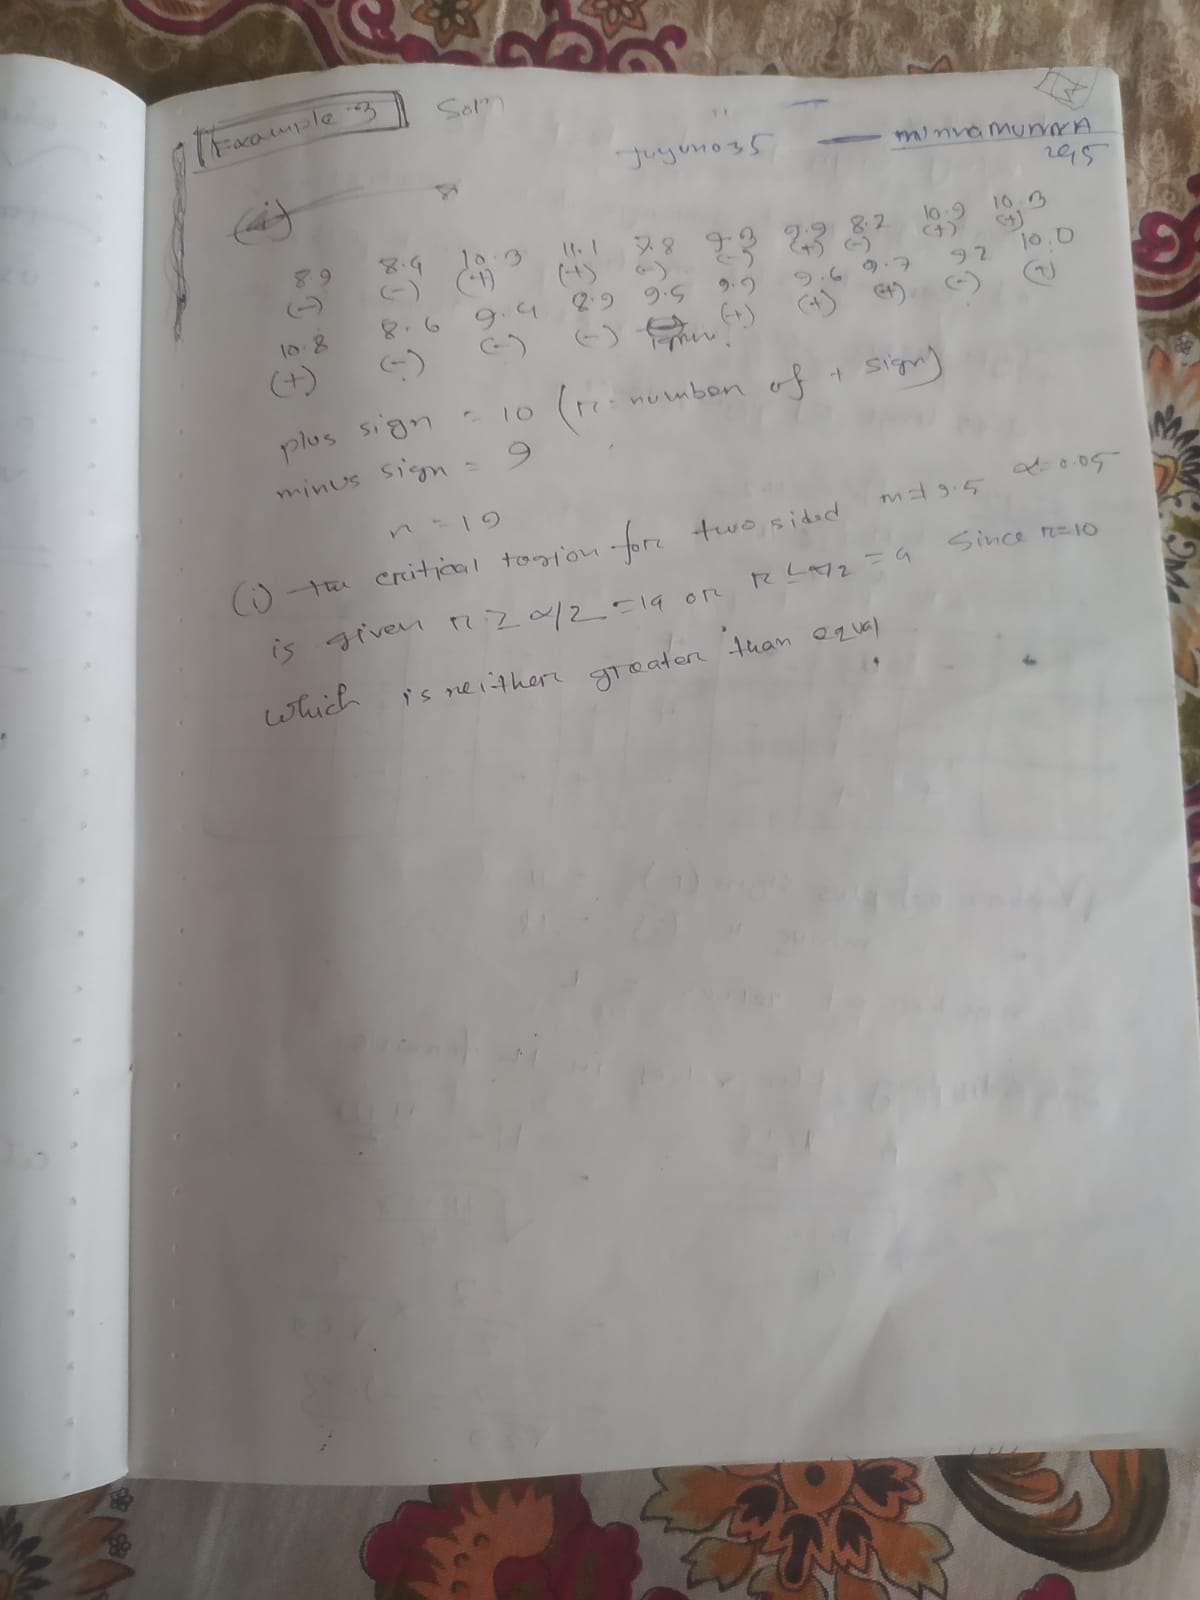 Example-3 Soln
juyuno35 — minvamunna
295
(i)
8.9 8.4 10.3 11.1 7.8 9.3 9.9 8.2 10.9 10.3
(-) (-) (+) (+) (-) (-) (+) (-) (+) (+)
10.8 8.6 9.4 8.9 9.5 9.9 9.6 9.7 9.2 10.0
(+) (-) (-) (-) (+) (+) (+) (-) (+)
plus sign = 10 (r = number of + sign)
minus sign = 9
n = 19
(i) the critical region for two sided m≠9.5 α=0.05
is given r ≥ α/2 = 14 or r ≤ α/2 = 4 Since r=10
which is neither greater than equal